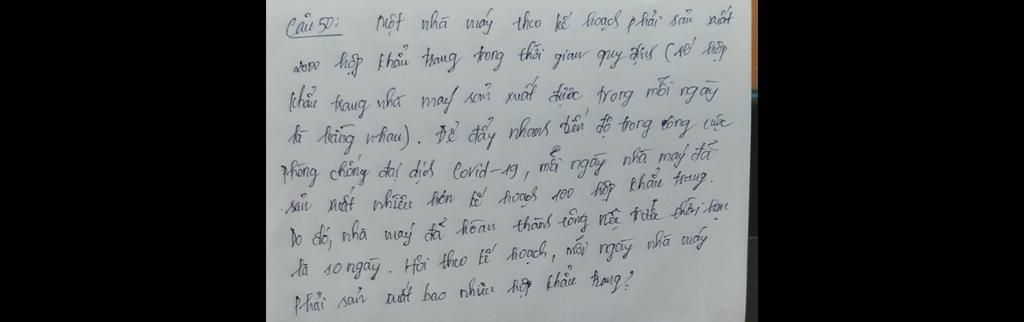 Câu 50: Một nhà máy theo kế hoạch phải sản xuất
2000 hộp khẩu trang trong thời gian quy định (số hộp
khẩu trang nhà máy sản xuất được trong mỗi ngày
là bằng nhau). Để đẩy nhanh tiến độ trong công cuộc
phòng chống đại dịch Covid-19, mỗi ngày nhà máy đã
sản xuất nhiều hơn kế hoạch 100 hộp khẩu trang.
Do đó, nhà máy đã hoàn thành công việc trước thời hạn
là 10 ngày. Hỏi theo kế hoạch, mỗi ngày nhà máy
phải sản xuất bao nhiêu hộp khẩu trang?